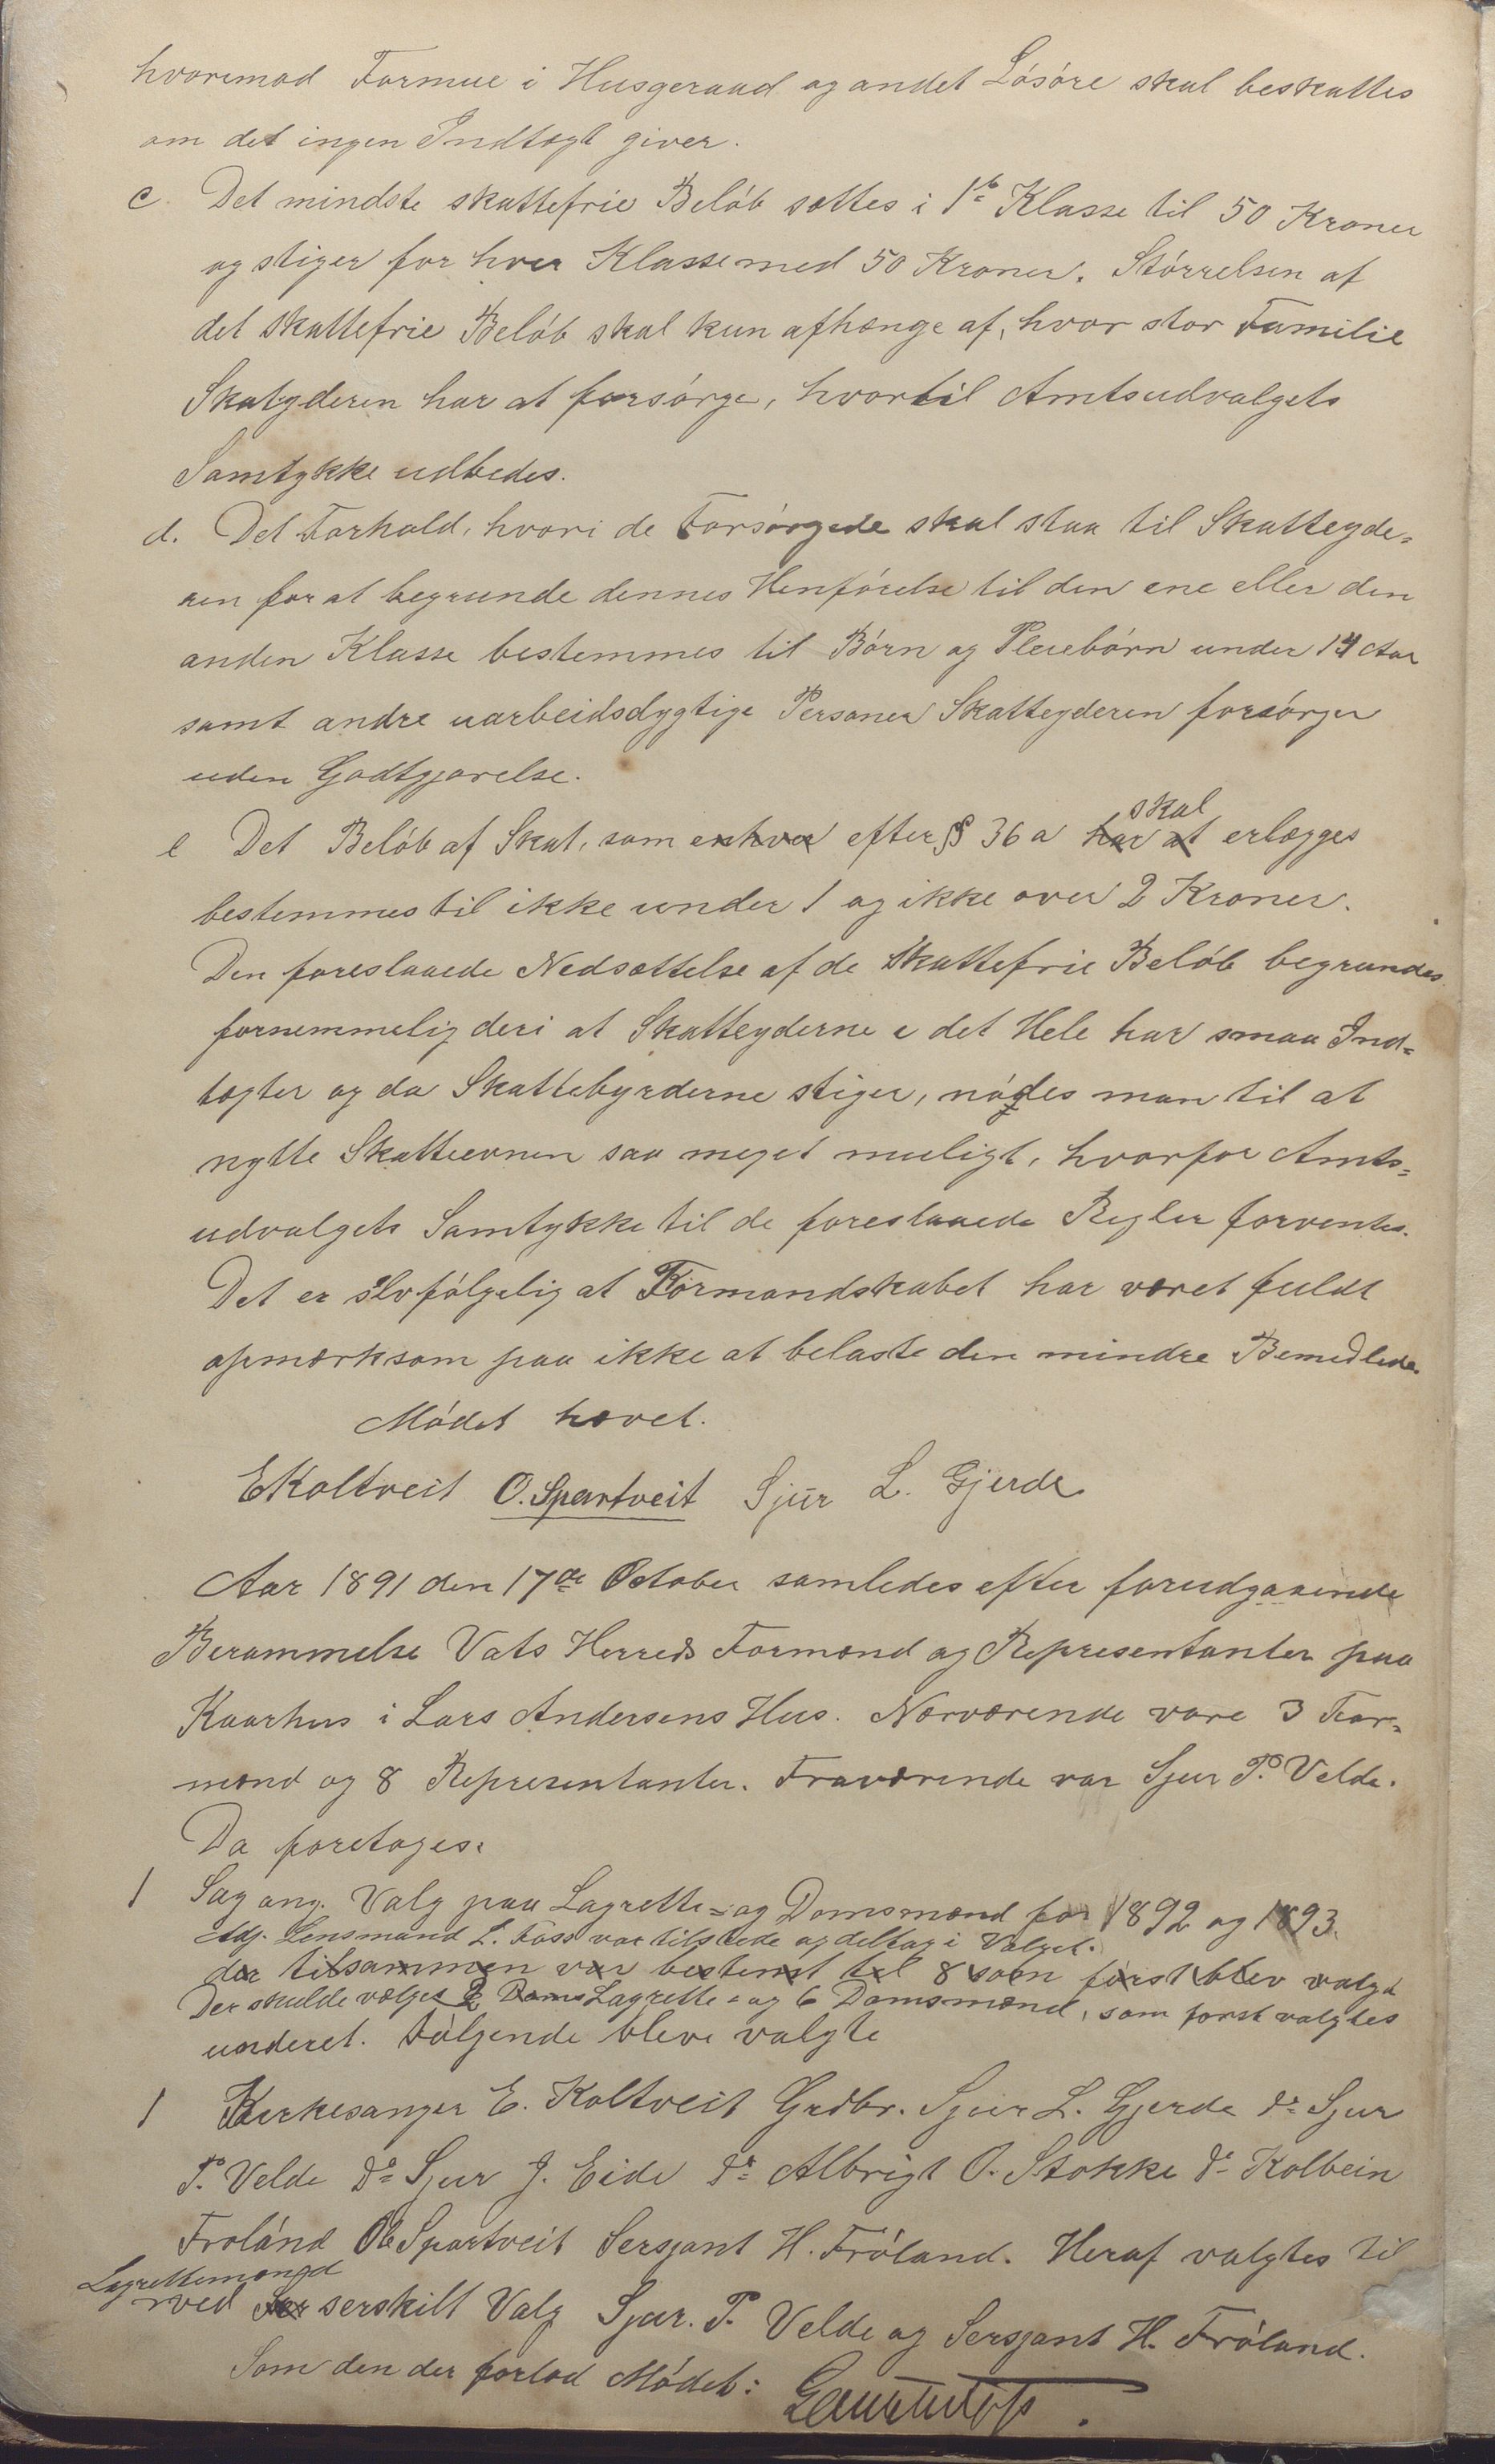 hvorimod Formue i Husgeraad og andet Lösöre skal beskattes
om det ingen Indtægt giver.
c. Det mindste skattefrie Belöb sættes i 1ste Klasse til 50 Kroner
og stiger for hver Klasse med 50 Kroner. Störrelsen af
det skattefrie Belöb skal kun afhænge af, hvor stor Familie
Skatyderen har at forsörge, hvortil Amtsudvalgets
Samtykke udbedes.
d. Det Forhold, hvori de Forsörgede skal staa til Skatteyde=
ren for at begrunde dennes Henförelse til den ene eller den
anden Klasse bestemmes til Börn og Pleiebörn under 14 Aar
samt andre uarbeidsdygtige Personer Skatteyderen forsörger
uden Godtgjorelse.
skal
e Det Belöb af Skat, som enhver efter § 36 a har at erlægges
bestemmes til ikke under 1 og ikke over 2 Kroner.
Den foreslaaede Nedsættelse af de skattefrie Belöb begrundes
fornemmelig deri at Skatteyderne i det Hele har smaa Ind=
tægter og da Skattebyrderne stiger, nödes man til at
nytte Skatteevnen saa meget muligt, hvorfor Amts=
udvalgets Samtykke til de foreslaaede Regler forventes.
Det er selvfölgelig at Formandskabet har været fuldt
opmærksom paa ikke at belaste den mindre Bemedlede.
Mödet hævet.
E Koltveit O. Spartveit Sjur L. Gjerde
Aar 1891 den 17de October samledes efter forudgaaende
Berammelse Vats Herreds Formænd og Representanter paa
Kaarhus i Lars Andersens Hus. Nærværende vare 3 For=
mænd og 8 Representanter. Fraværende var Sjur P. Velde.
Da foretoges:
1 Sag ang. Valg paa Lagrette= og Domsmænd for 1892 og 1893.
Adj. Lensmand L. Foss var tilstede og deltog i Valget.
der tilsammen var bestemt til 8 som först blev valgt
Der skulde vælges 2 Doms Lagrette= og 6 Domsmænd, som forst valgtes
underet. Fölgende bleve valgte
1 Kirkesanger E. Koltveit Grdbr. Sjur L. Gjerde do Sjur
P. Velde do Sjur J. Eide do Albrigt O. Stokke do Kolbein
Fröland Ole Spartveit Sersjant H. Fröland. Heraf valgtes til
Lagrettemænd
ved serskilt Valg Sjur. P. Velde og Sersjant H. Fröland.
Som den der forlod Mödet: